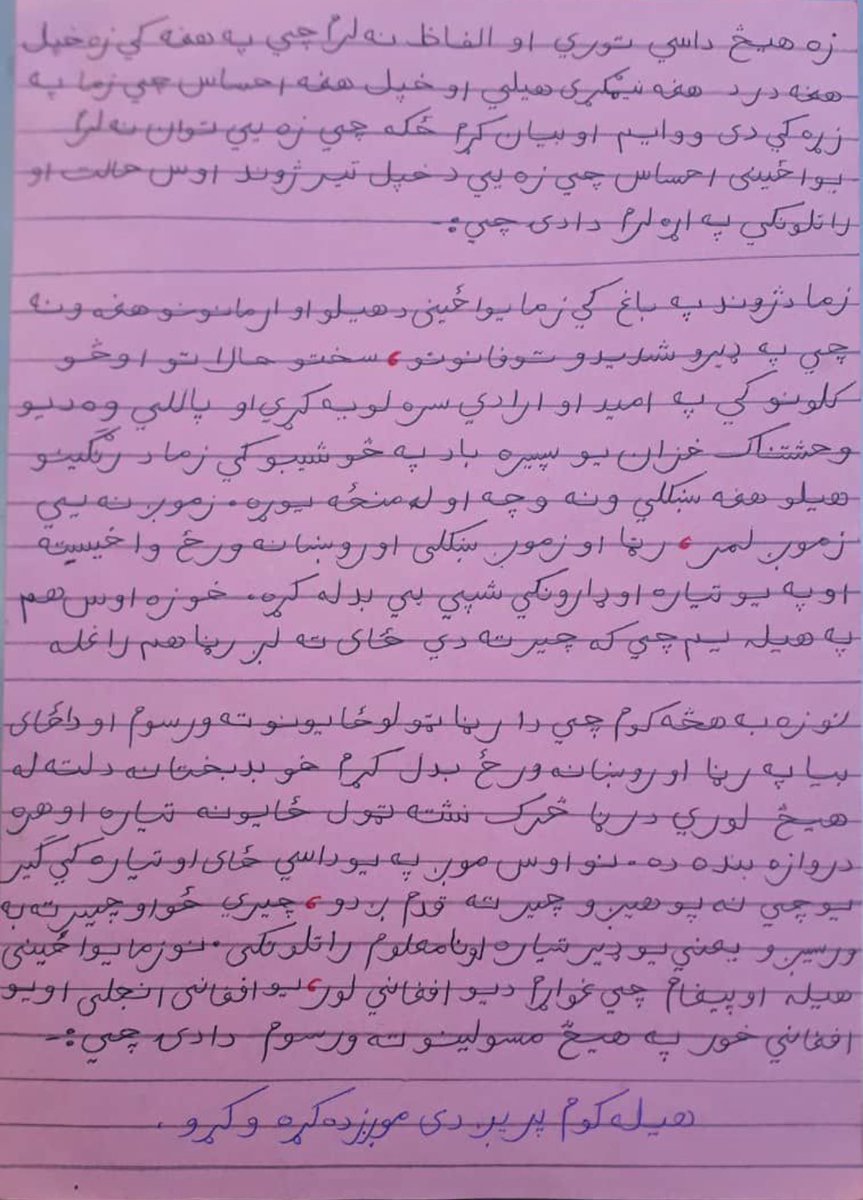 زه هیڅ داسي توري او الفاظ نه لرم چي په هغه کي زه خپل
هغه درد هغه نیمګړی هیلي او خپل هغه احساس چي زما په
زړه کي دی ووایم او بیان کړم ځکه چي زه یي توان نه لرم
یواځینی احساس چي زه یي د خپل تیر ژوند اوس حالت او
راتلونکي په اړه لرم دادی چي:-
زما د ژوند په باغ کي زما یواځینی د هیلو او ارمانونو هغه ونه
چي په ډیرو شدیدو توفانونو، سختو حالاتو او څو
کلونو کي په امید او ارادي سره لویه کړي او پاللي وه د یو
وحشتناک خزان یو سپیره باد په څو شیبو کي زما د رنګینو
هیلو هغه ښکللي ونه وچه او له منځه یوړه. زموږ نه یي
زموږ لمر، رڼا او زموږ ښکلی او روښانه ورځ واخیسته
او په یو تیاره او ډارونکي شپي یي بدله کړه. خو زه اوس هم
په هیله یم چي که چیرته دي ځای ته لږ رڼا هم راغله
نو زه به هڅه کوم چي دا رڼا ټولو ځایونو ته ورسوم او داځای
بیا په رڼا او روښانه ورځ بدل کړم خو بدبختانه دلته له
هیڅ لوري د رڼا څرک نشته ټول ځایونه تیاره او هره
دروازه بنده ده. نو اوس موږ په یو داسي ځای او تیاره کي ګیر
یو چي نه پوهیږو چیرته قدم ږدو، چیري ځو او چیرته به
ورسیږو یعني یو ډیر تیاره او نامعلوم راتلونکی. نو زما یواځینی
هیله او پیغام چي غواړم د یو افغاني لور، یو افغانی انجلی او یو
افغاني خور په هیڅ مسولینو ته ورسوم دادی چي:-
هیله کوم پریږدی موږ زده کړه وکړو.